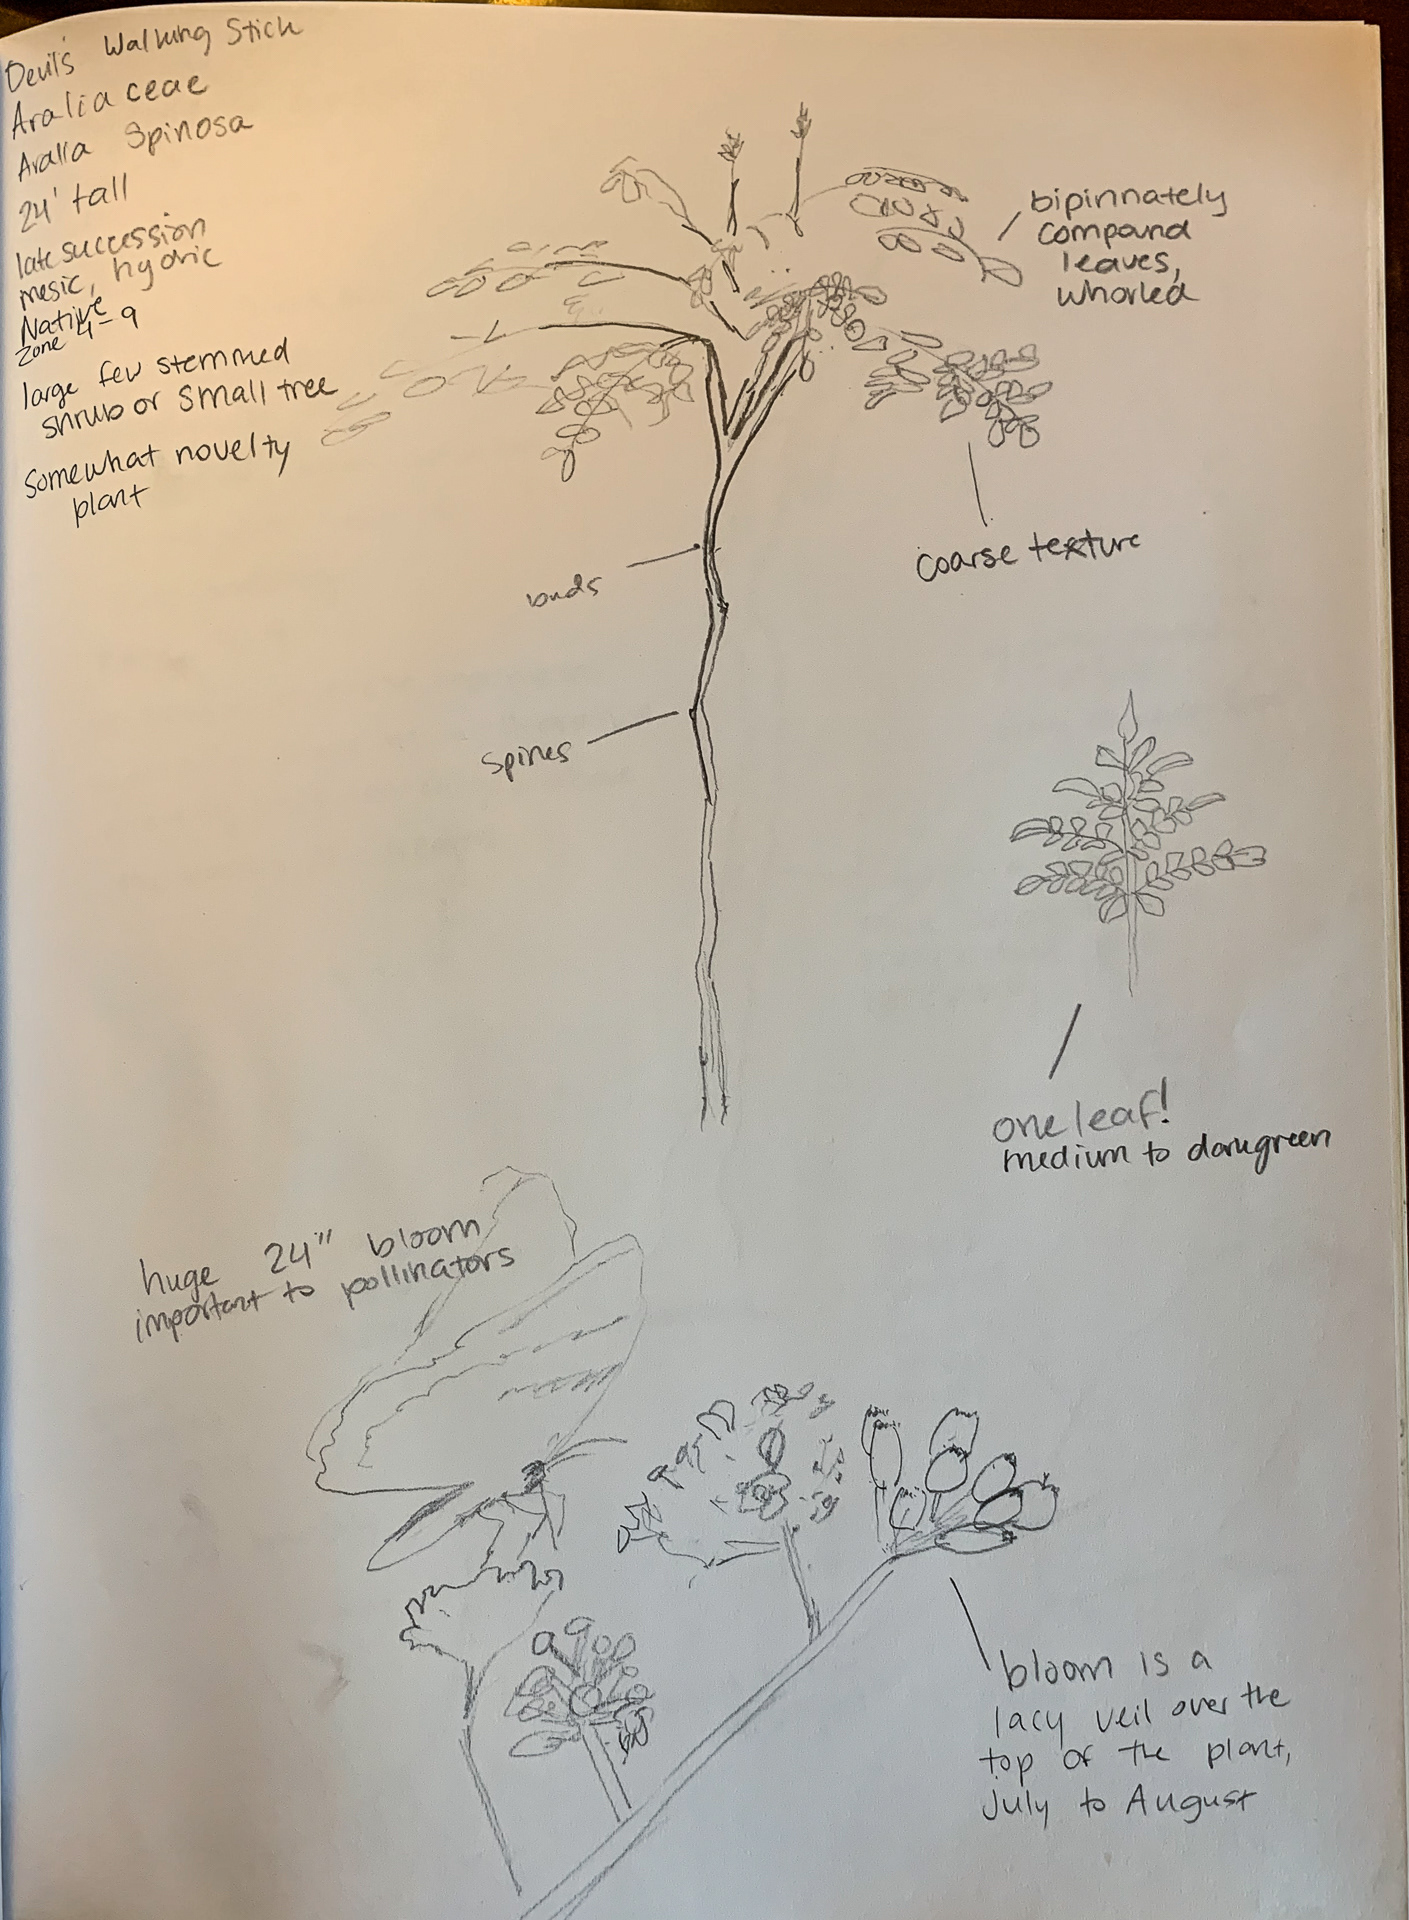 Devil's Walking Stick
Araliaceae
Aralia Spinosa
24' tall
late succession
mesic, hydric
Native
Zone 4-9
large few stemmed
shrub or small tree
Somewhat novelty
plant
bipinnately
compound
leaves,
whorled
coarse texture
buds
spines
one leaf!
medium to darkgreen
huge 24" bloom
important to pollinators
bloom is a
lacy veil over the
top of the plant,
July to August